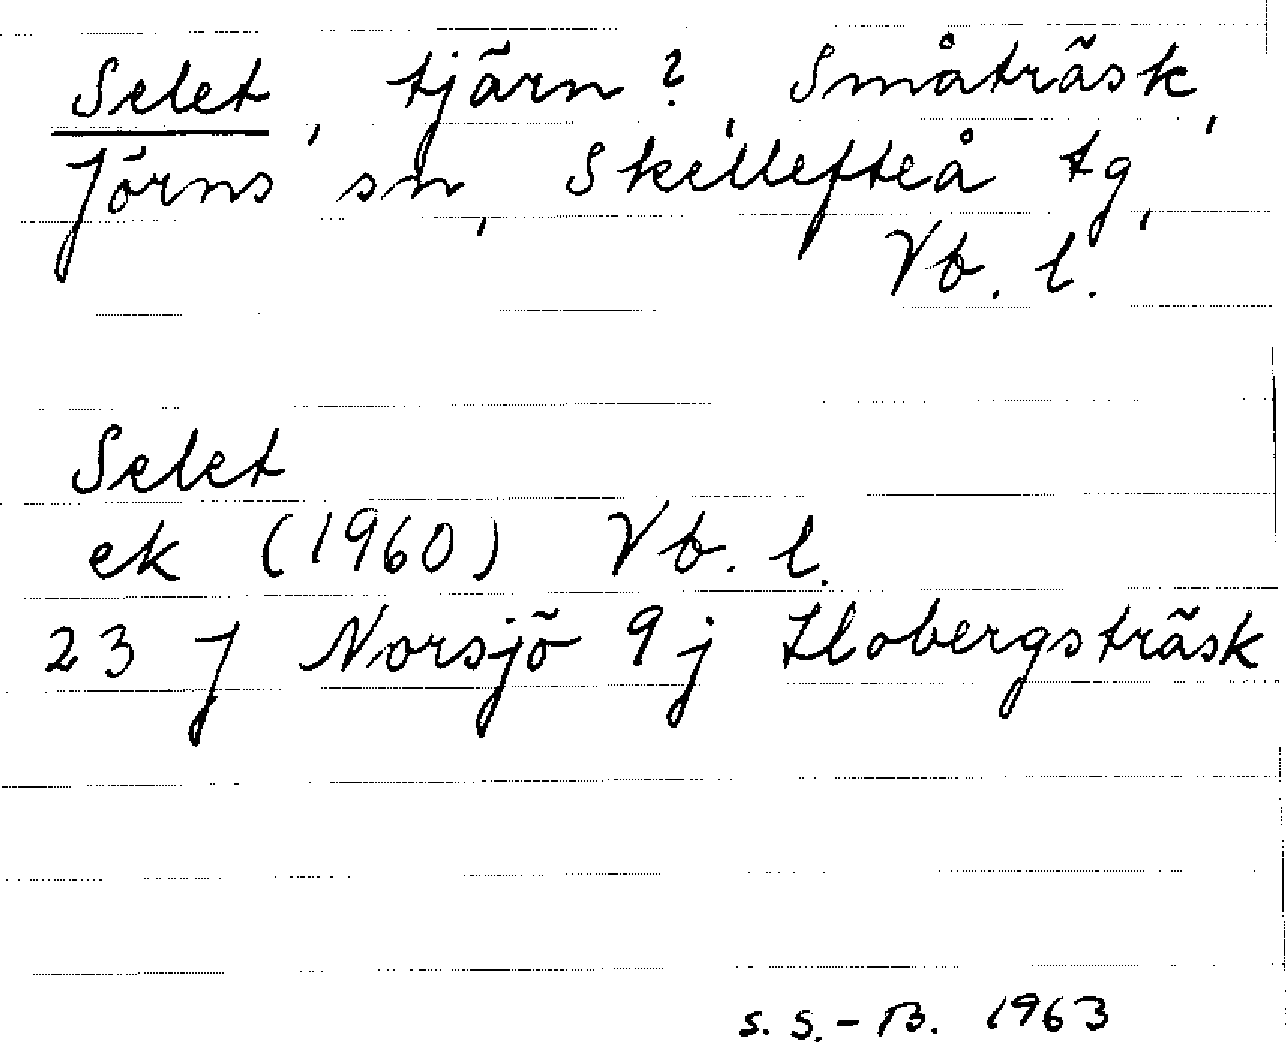 Selet, tjärn?, Småträsk,
Jörns sn, Skellefteå tg,
Vb. l.
Selet
ek (1960) Vb. l.
23 J Norsjö 9j Flobergsträsk
S. S.-B. 1963